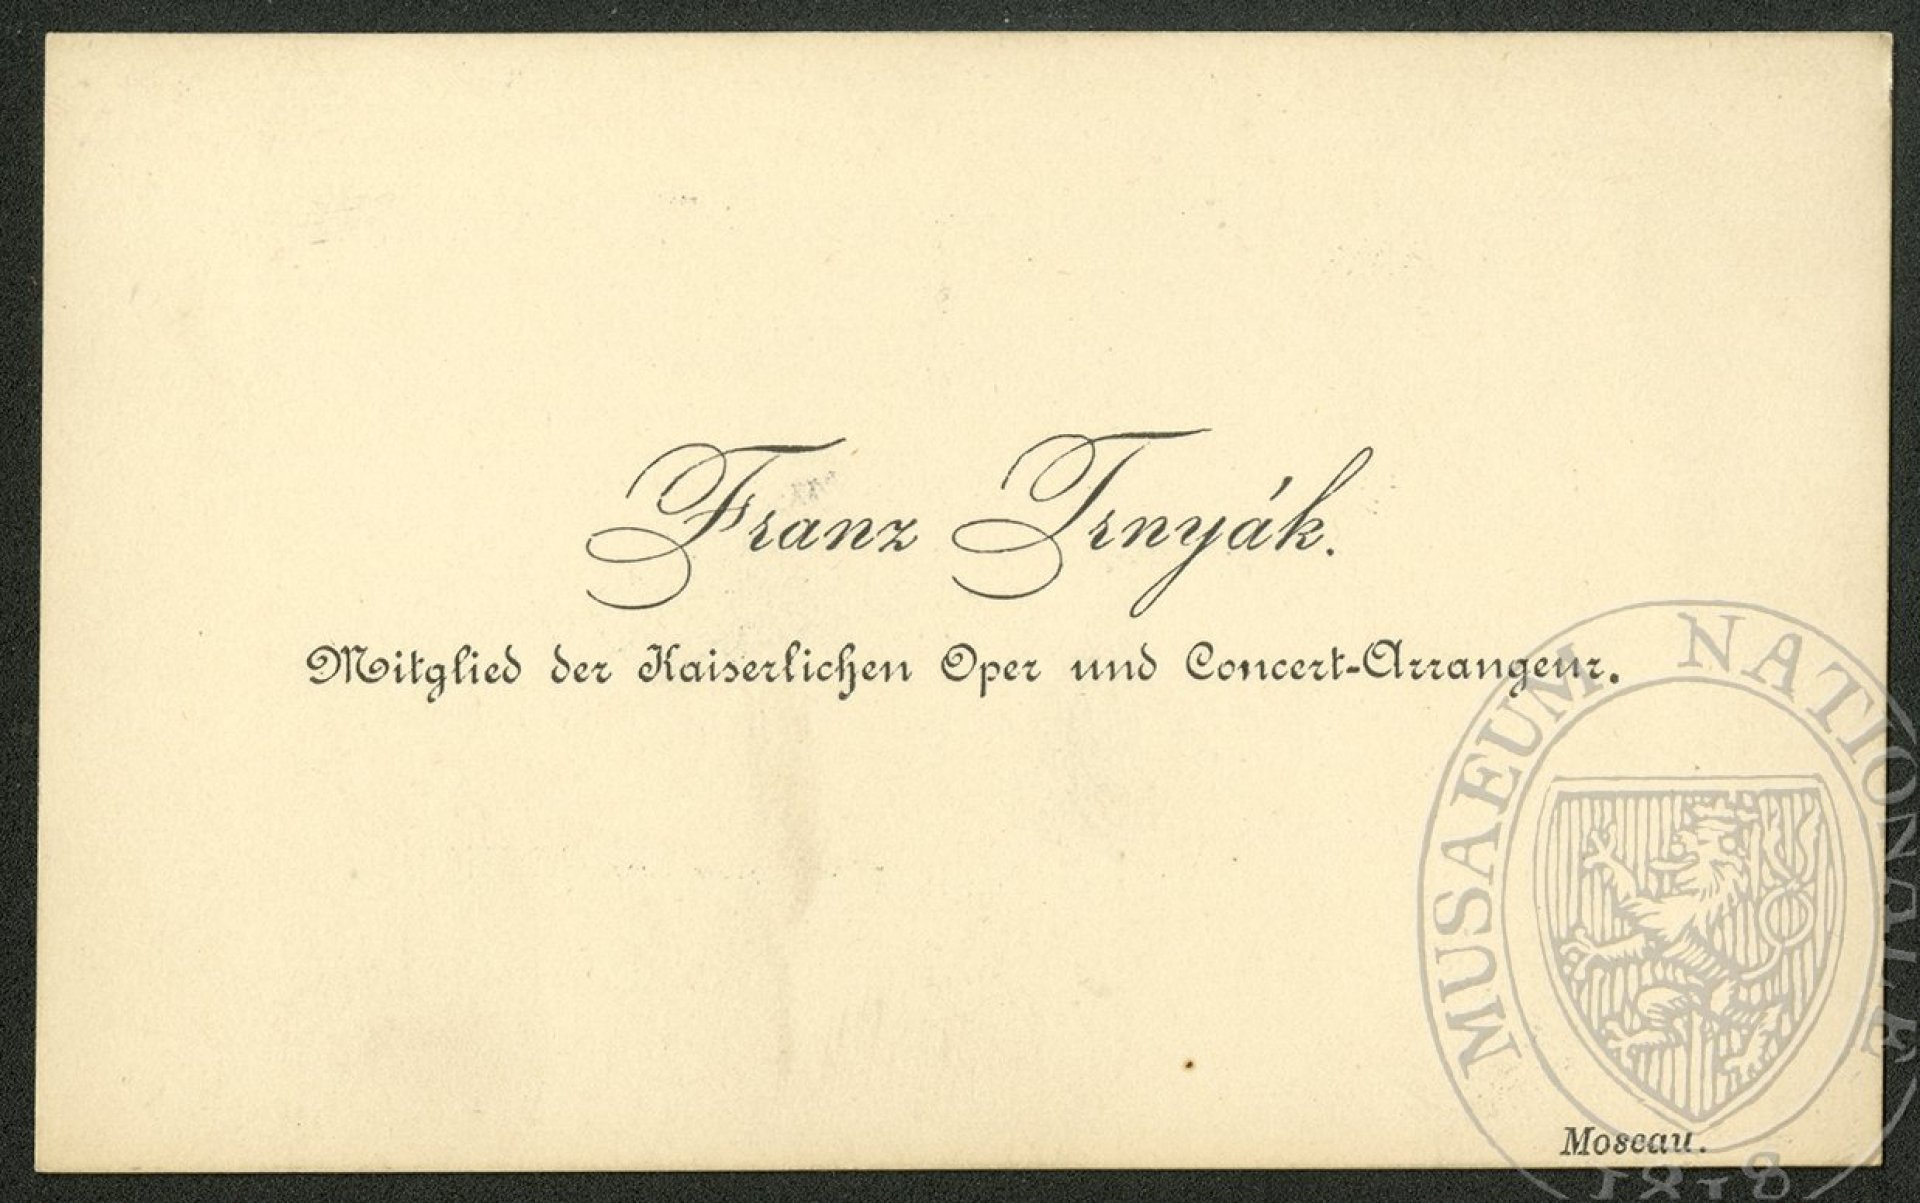 Franz Trnyák.
Mitglied der Kaiserlichen Oper und Concert-Arrangeur.
MUSAEUM NATIONALE
Moscau.
1818